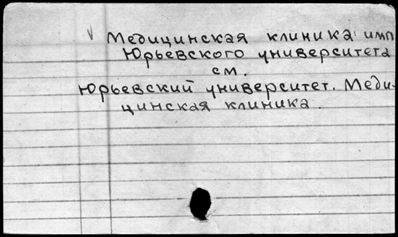 Медицинская клиника имп.
Юрьевского университета
см.
Юрьевский университет. Меди-
цинская клиника.